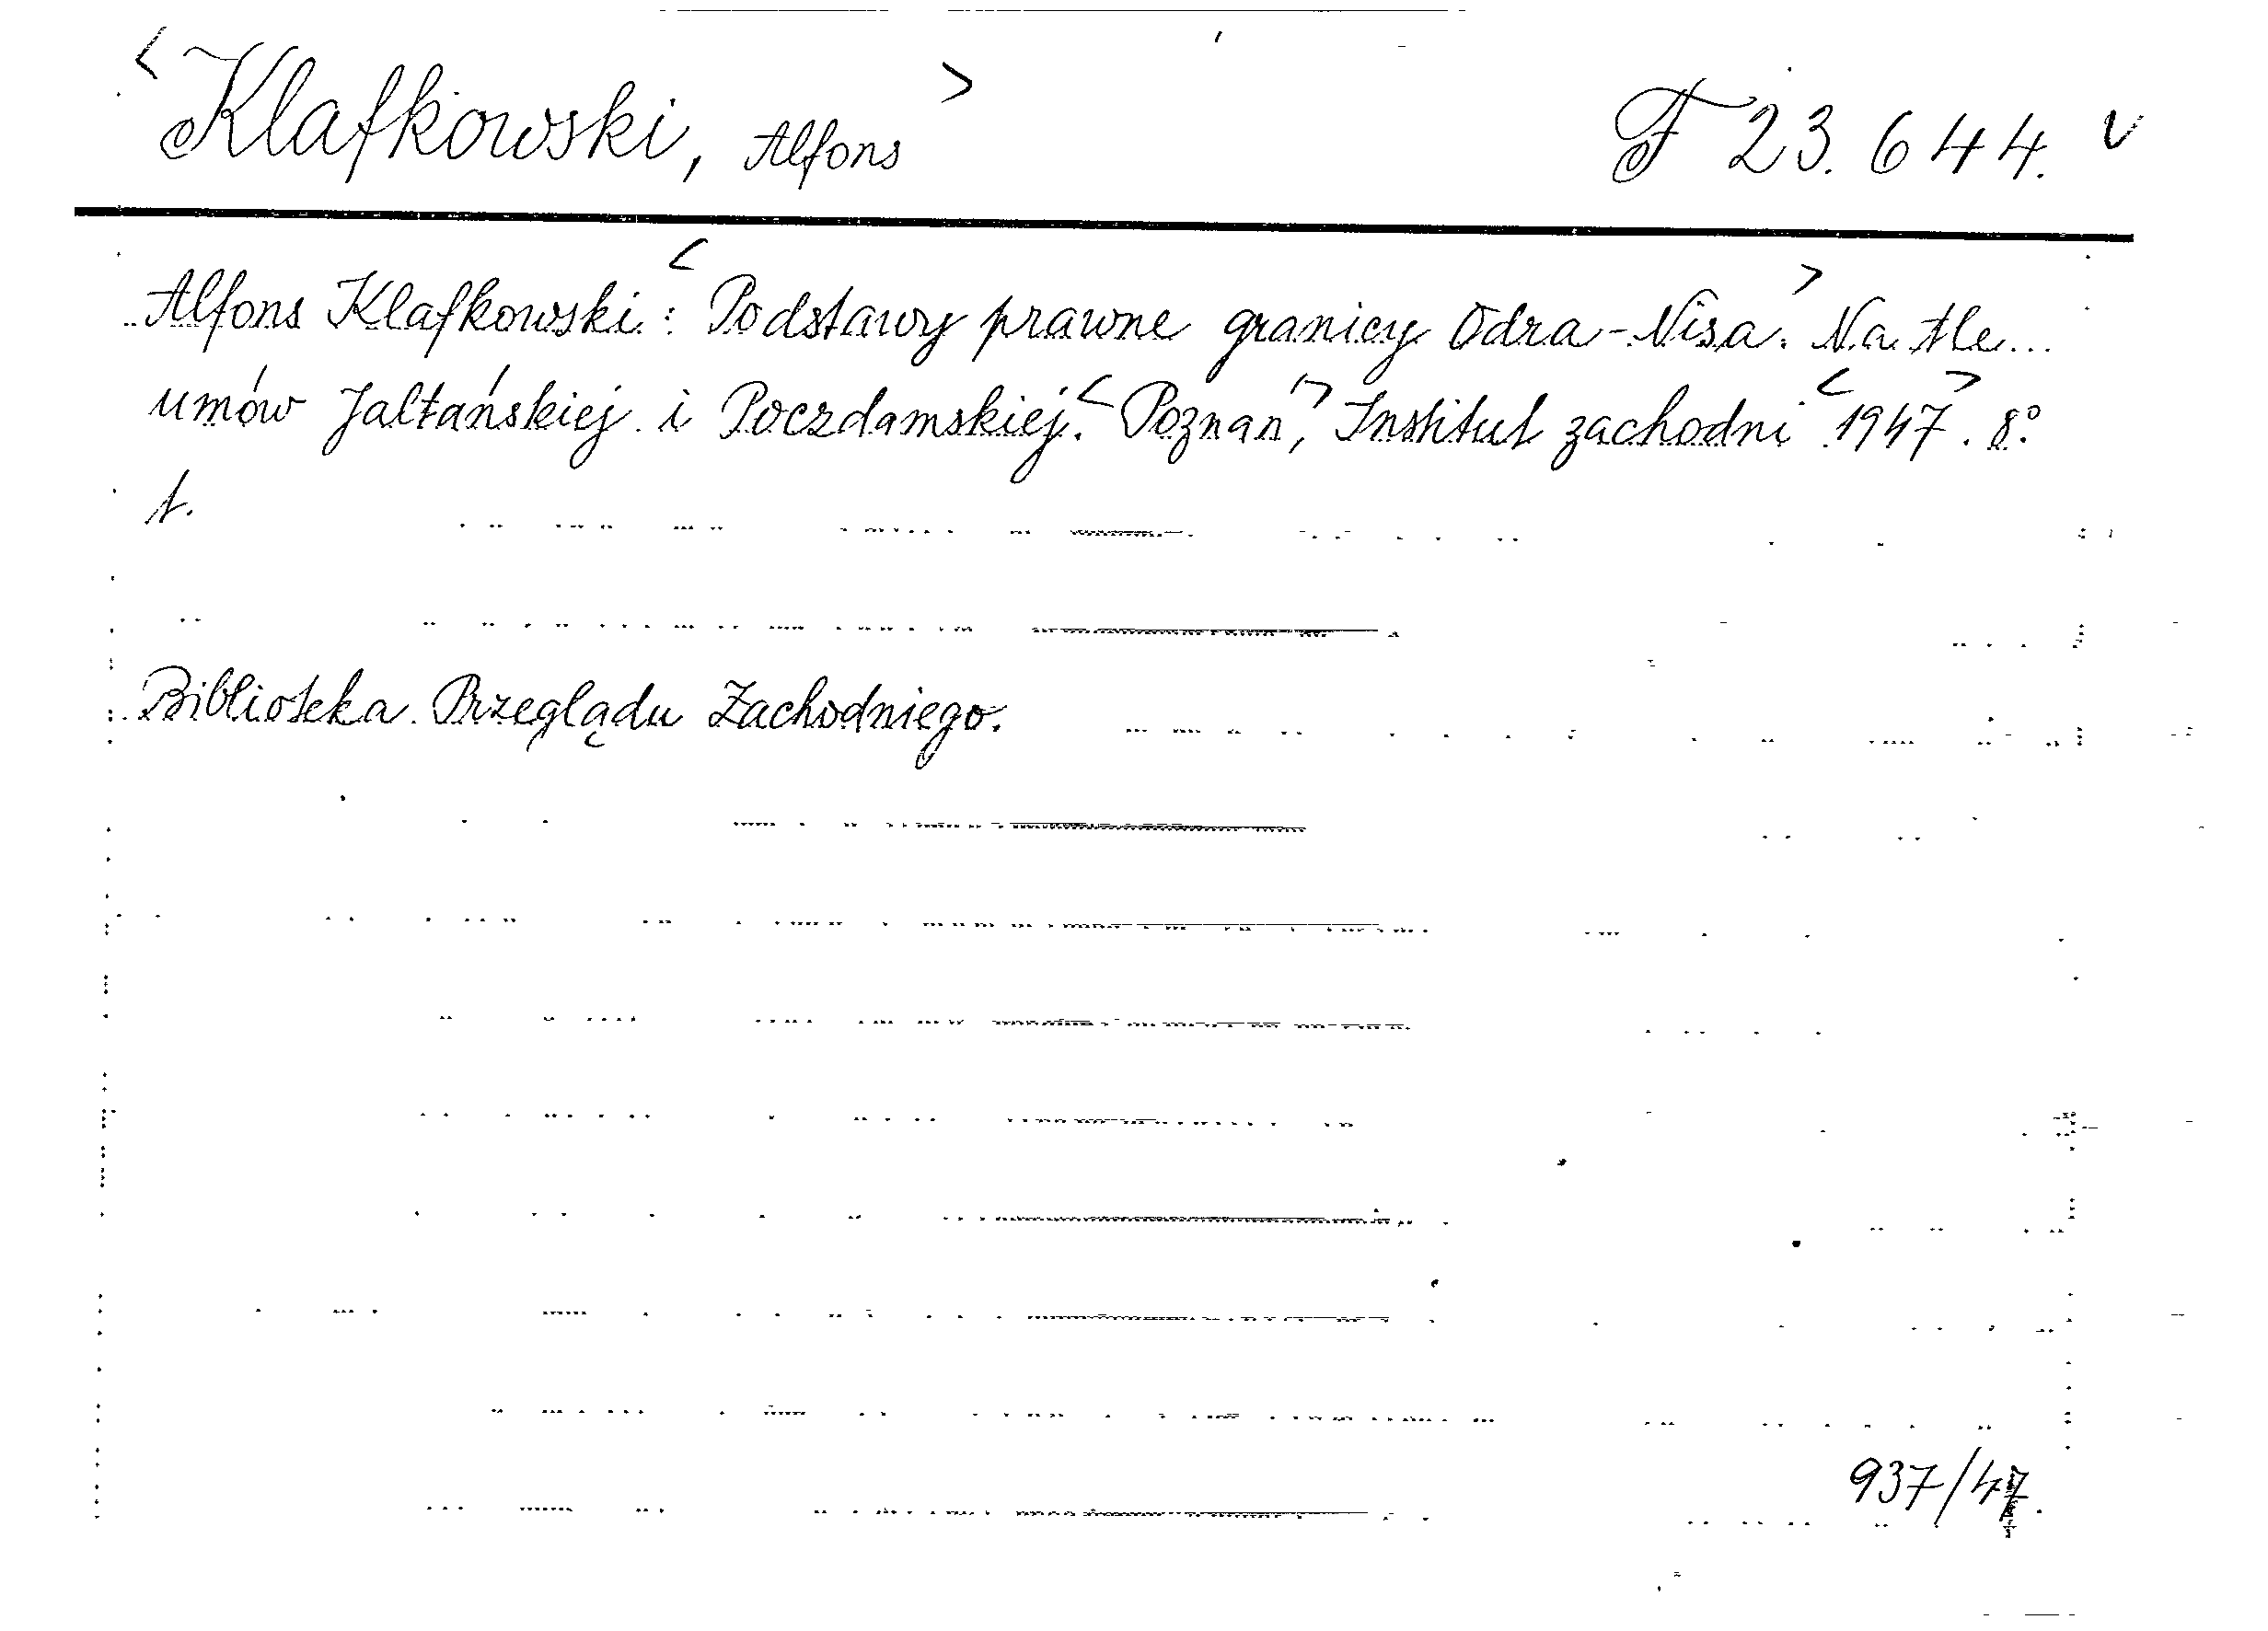 <Klafkowski, Alfons> F 23.644. v
Alfons Klafkowski: <Podstawy prawne granicy Odra-Nisa>. Na tle...
umów Jałtańskiej i Poczdamskiej. <Poznań>, Institut zachodni <1947>. 8°
t.
Biblioteka Przeglądu Zachodniego.
937/47.